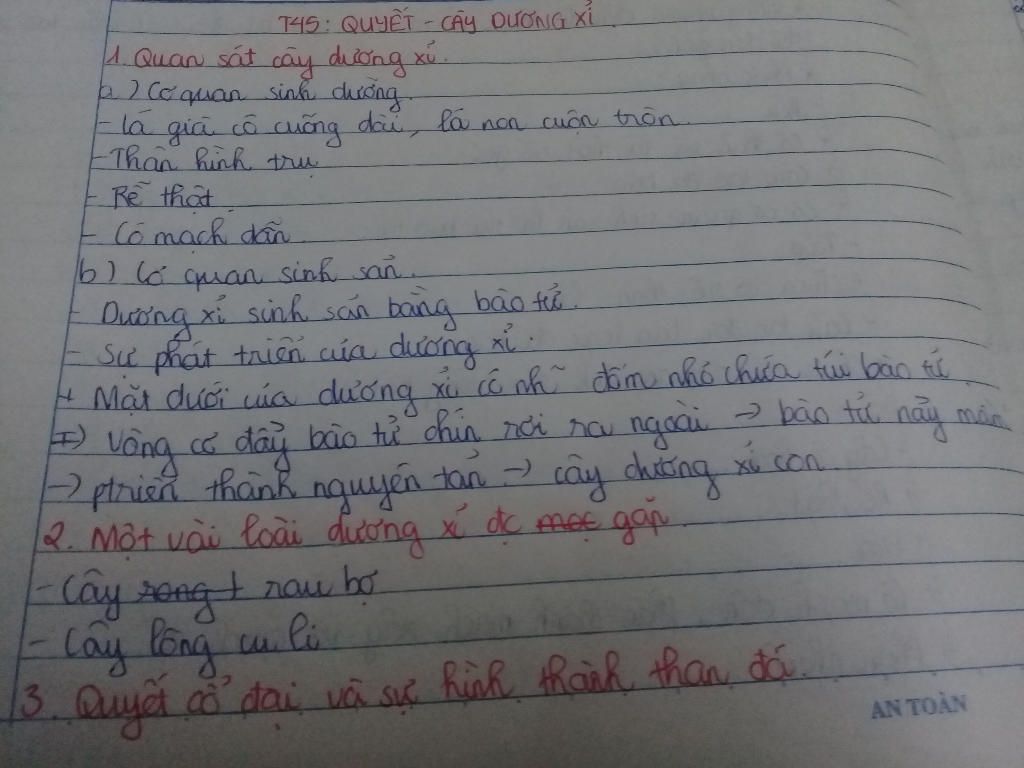 T45: QUYẾT - CÂY DƯƠNG XỈ
1. Quan sát cây dương xỉ.
a) Cơ quan sinh dưỡng
- Lá già có cuống dài, lá non cuộn tròn
- Thân hình trụ
- Rễ thật
- Có mạch dẫn
b) Cơ quan sinh sản.
- Dương xỉ sinh sản bằng bào tử.
- Sự phát triển của dương xỉ.
+ Mặt dưới của dương xỉ có nh~ đốm nhỏ chứa túi bào tử
=> Vòng cơ đẩy bào tử chín rơi ra ngoài → bào tử nảy mầm
→ ptriển thành nguyên tản → cây dương xỉ con
2. Một vài loài dương xỉ đc gặp
- Cây rau bợ
- Cây lông cu li
3. Quyết cổ đại và sự hình thành than đá.
AN TOÀN